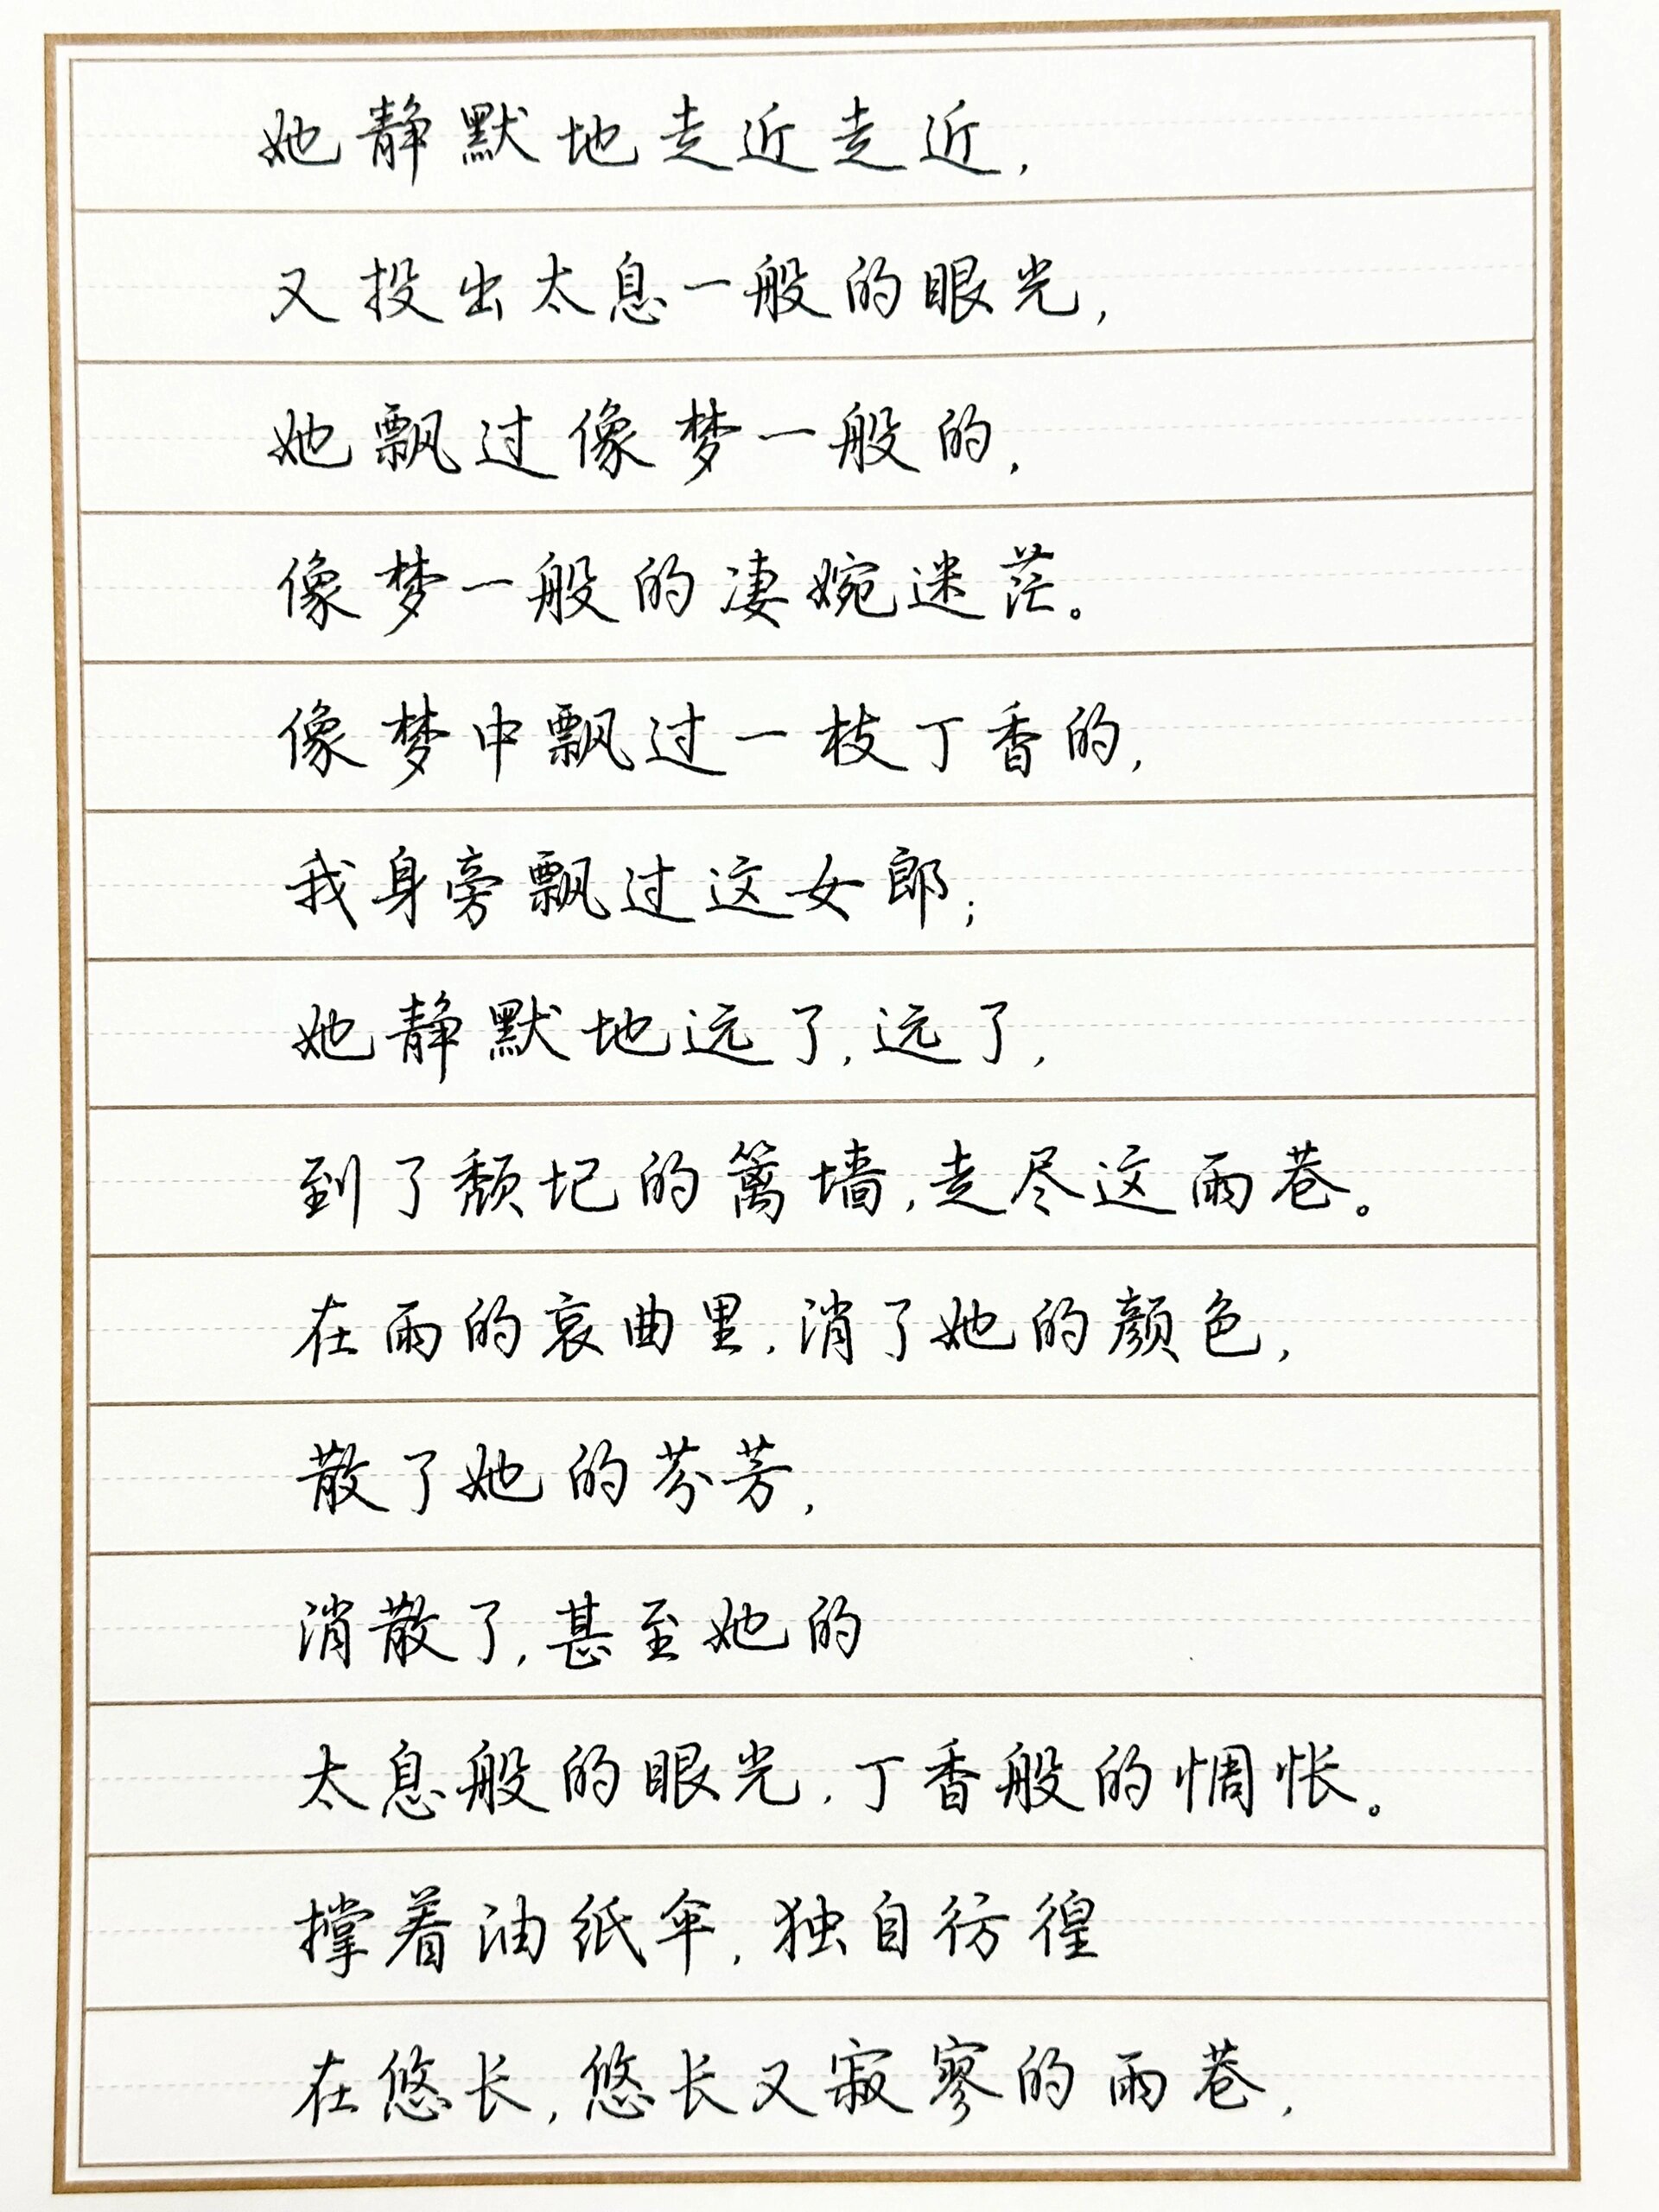 她静默地走近走近，
又投出太息一般的眼光，
她飘过像梦一般的，
像梦一般的凄婉迷茫。
像梦中飘过一枝丁香的，
我身旁飘过这女郎；
她静默地远了，远了，
到了颓圮的篱墙，走尽这雨巷。
在雨的哀曲里，消了她的颜色，
散了她的芬芳，
消散了，甚至她的
太息般的眼光，丁香般的惆怅。
撑着油纸伞，独自彷徨
在悠长，悠长又寂寥的雨巷，